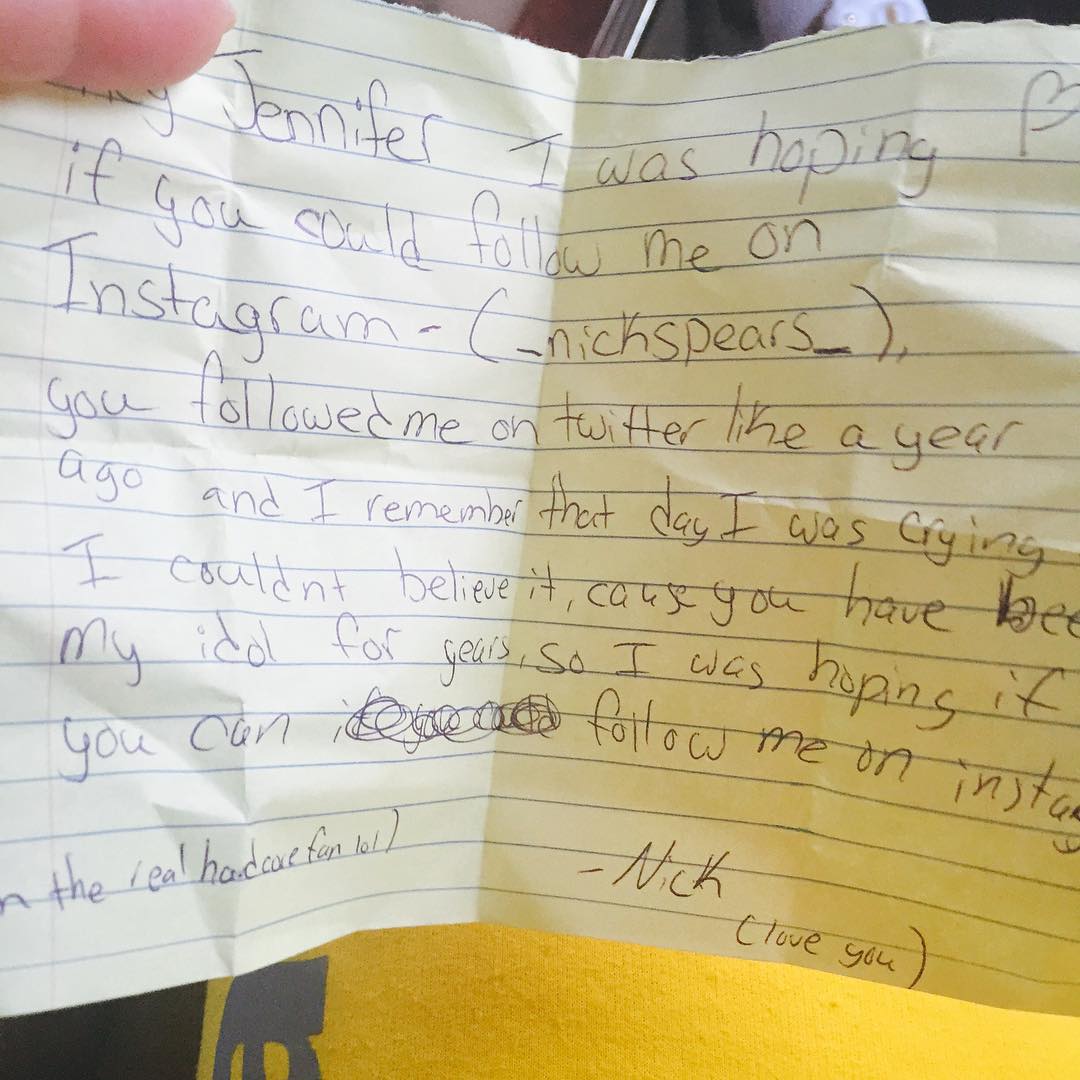 Jennifer I was hoping
if you could follow me on
Instagram - (_nickspears_),
you followed me on twitter like a year
ago and I remember that day I was crying
I couldnt believe it, cause you have bee
my idol for years, so I was hoping if
you can follow me on instag
m the real hardcore fan lol)
- Nick
(love you)